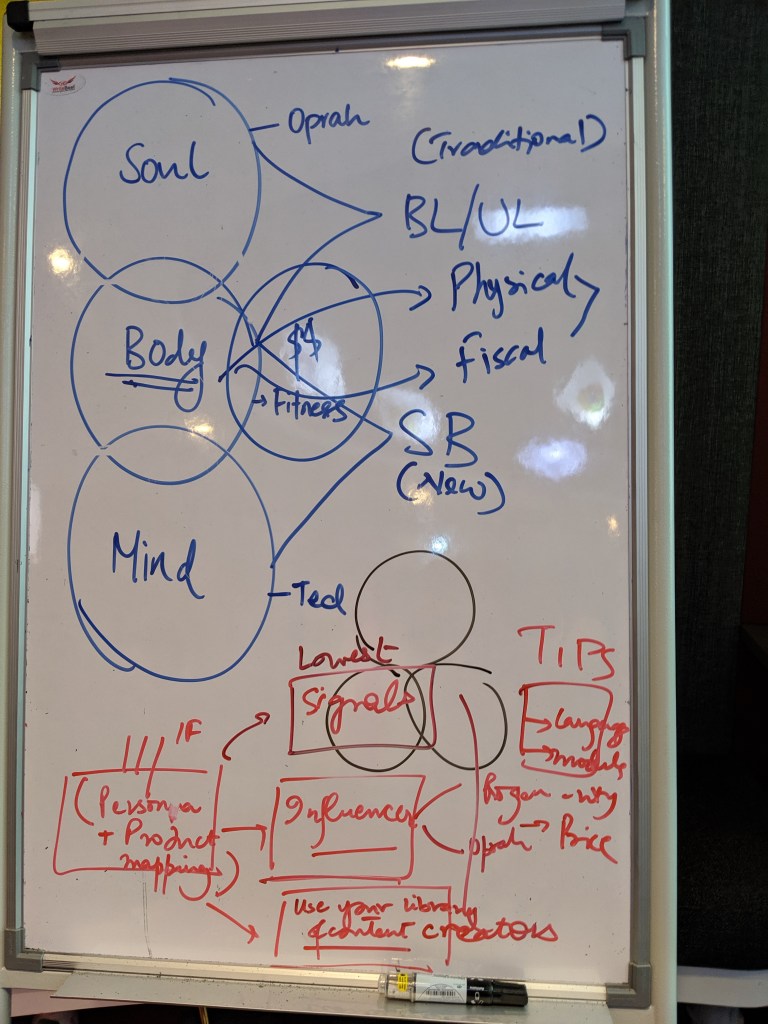 Soul
Oprah
(Traditional)
BL/UL
Body
$$
→ Fitness
Physical
Fiscal
SB
(New)
Mind
Ted
Lowest
Signals
TIPS
→ Language
→ module
IF
(Persona
+ Product
mapping)
Influencer
Rogan -
Oprah → Price
Use your library
of content creators